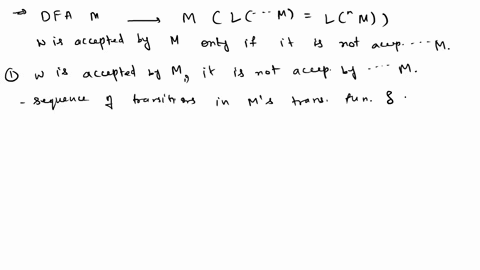 → DFA M → M ( L(···· M) = L(ⁿ M))
w is accepted by M only if it is not accep. ···· M.
① w is accepted by M, it is not accep. by ···· M.
- sequence of transitions in M's trans. fun. δ .